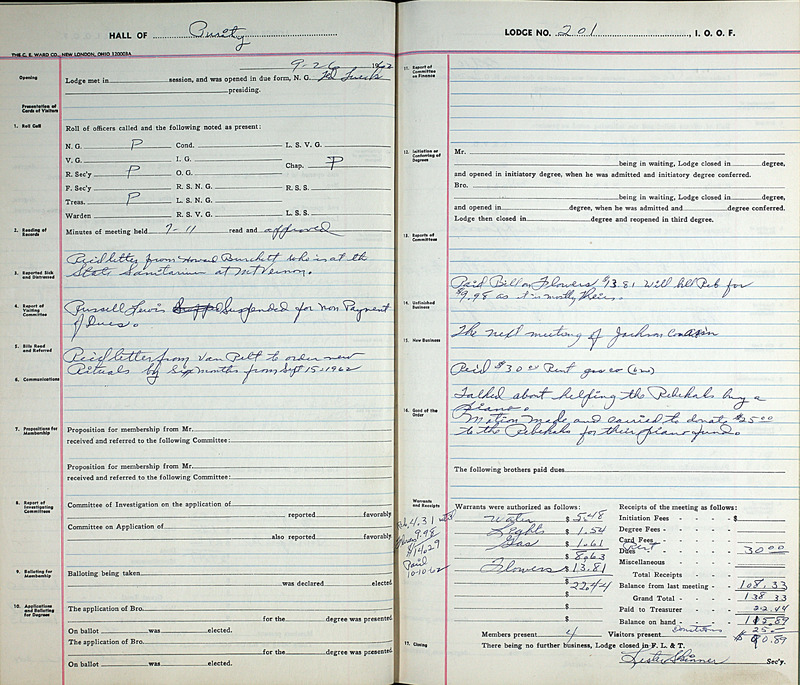 HALL OF Purity
THE C. E. WARD CO., NEW LONDON, OHIO 120005A
9-26 1962
Opening
Lodge met in session, and was opened in due form, N. G.
presiding.
Presentation of Cards of Visitors
1. Roll Call
Roll of officers called and the following noted as present:
N. G. P Cond. L. S. V. G.
V. G. I. G. Chap. P
R. Sec'y P O. G.
F. Sec'y R. S. N. G. R. S. S.
Treas. P L. S. N. G.
Warden R. S. V. G. L. S. S.
2. Reading of Records
Minutes of meeting held 9-11 read and approved
Recd letter from Howard Burchett who is at the
3. Reported Sick and Distressed
State Sanitarium at Mt Vernon.
4. Report of Visiting Committee
Russell Lewis Suspended for Non Payment
of Dues.
5. Bills Read and Referred
Recd letter from Van Pelt to order new
Rituals by Six months from Sept 15-1962
6. Communications
7. Propositions for Membership
Proposition for membership from Mr.
received and referred to the following Committee:
Proposition for membership from Mr.
received and referred to the following Committee:
8. Report of Investigating Committees
Committee of Investigation on the application of
reported favorably
Committee on Application of
also reported favorably
9. Balloting for Membership
Balloting being taken
was declared elected
10. Applications and Balloting for Degrees
The application of Bro.
for the degree was presented
On ballot was elected.
The application of Bro.
for the degree was presented
On ballot was elected.
LODGE NO. 201, I. O. O. F.
11. Report of Committee on Finance
12. Initiation or Conferring of Degrees
Mr.
being in waiting, Lodge closed in degree,
and opened in initiatory degree, when he was admitted and initiatory degree conferred.
Bro.
being in waiting, Lodge closed in degree,
and opened in degree, when he was admitted and degree conferred.
Lodge then closed in degree and reopened in third degree.
13. Reports of Committees
Paid Bill on Flowers $13.81 will bill Reb for
$9.98 as it is mostly theirs.
14. Unfinished Business
The next meeting of Jackson
15. New Business
Paid $30.00 Rent
Talked about helping the Rebekahs buy a
piano.
16. Good of the Order
Motion made and carried to donate $25.00
to the Rebekahs for their piano fund.
The following brothers paid dues
Warrants and Receipts
Warrants were authorized as follows:
Water $ 5.48
Lights $ 1.54
Gas $ 1.61
$ 8.63
Flowers $ 13.81
$ 22.44
$
$
$
Reb, 4.31
Flowers 9.98
$14.29
Paid
10-10-62
Receipts of the meeting as follows:
Initiation Fees - - - $
Degree Fees - - - -
Card Fees - - - -
Dues Rent 30 00
Miscellaneous - - -
Total Receipts - -
Balance from last meeting - 108.33
Grand Total - - 138 33
Paid to Treasurer - - 22.44
Balance on hand - - - 115.89
Donations 25
$ 90.89
Members present 4 Visitors present
17. Closing
There being no further business, Lodge closed in F. L. & T.
Lester Skinner Sec'y.